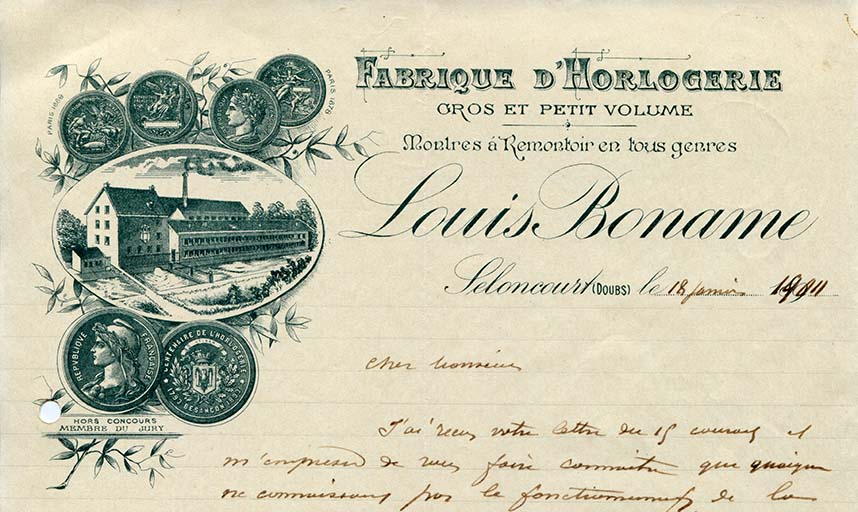 FABRIQUE D'HORLOGERIE
GROS ET PETIT VOLUME
Montres à Remontoir en tous genres
Louis Boname
Seloncourt (DOUBS) le 18 janvier 1911
PARIS 1889
PARIS 1878
REPVBLIQVE FRANÇAISE
CENTENAIRE DE L'HORLOGERIE
BESANÇON
HORS CONCOURS
MEMBRE DU JURY
Cher Monsieur
J'ai reçu votre lettre du 15 courant et
m'empresse de vous faire connaître que quoique
ne connaissant pas le fonctionnement de la